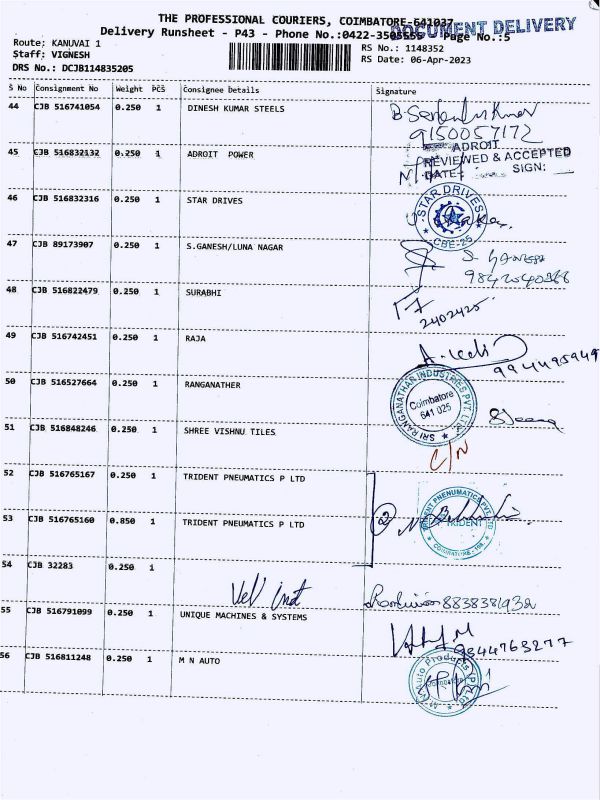 THE PROFESSIONAL COURIERS, COIMBATORE-641037
DOCUMENT DELIVERY
Delivery Runsheet - P43 - Phone No.:0422-3505555 Page No.:5
Route: KANUVAI 1
Staff: VIGNESH
DRS No.: DCJB114835205
RS No.: 1148352
RS Date: 06-Apr-2023
S No Consignment No Weight PCS Consignee Details Signature
44 CJB 516741054 0.250 1 DINESH KUMAR STEELS
9150057172
45 CJB 516832132 0.250 1 ADROIT POWER
ADROIT
REVIEWED & ACCEPTED
DATE: SIGN:
46 CJB 516832316 0.250 1 STAR DRIVES
STAR DRIVES
CBE-25
47 CJB 89173907 0.250 1 S.GANESH/LUNA NAGAR
S. GANESH
48 CJB 516822479 0.250 1 SURABHI
2402425
49 CJB 516742451 0.250 1 RAJA
50 CJB 516527664 0.250 1 RANGANATHER
SRI RANGANATHAR INDUSTRIES PVT. LTD.
Coimbatore
641 025
51 CJB 516848246 0.250 1 SHREE VISHNU TILES
C/N
52 CJB 516765167 0.250 1 TRIDENT PNEUMATICS P LTD
53 CJB 516765160 0.850 1 TRIDENT PNEUMATICS P LTD
2
TRIDENT PNEUMATICS PVT. LTD
TRIDENT
54 CJB 32283 0.250 1
8838381932
55 CJB 516791099 0.250 1 UNIQUE MACHINES & SYSTEMS
9344763277
56 CJB 516811248 0.250 1 M N AUTO